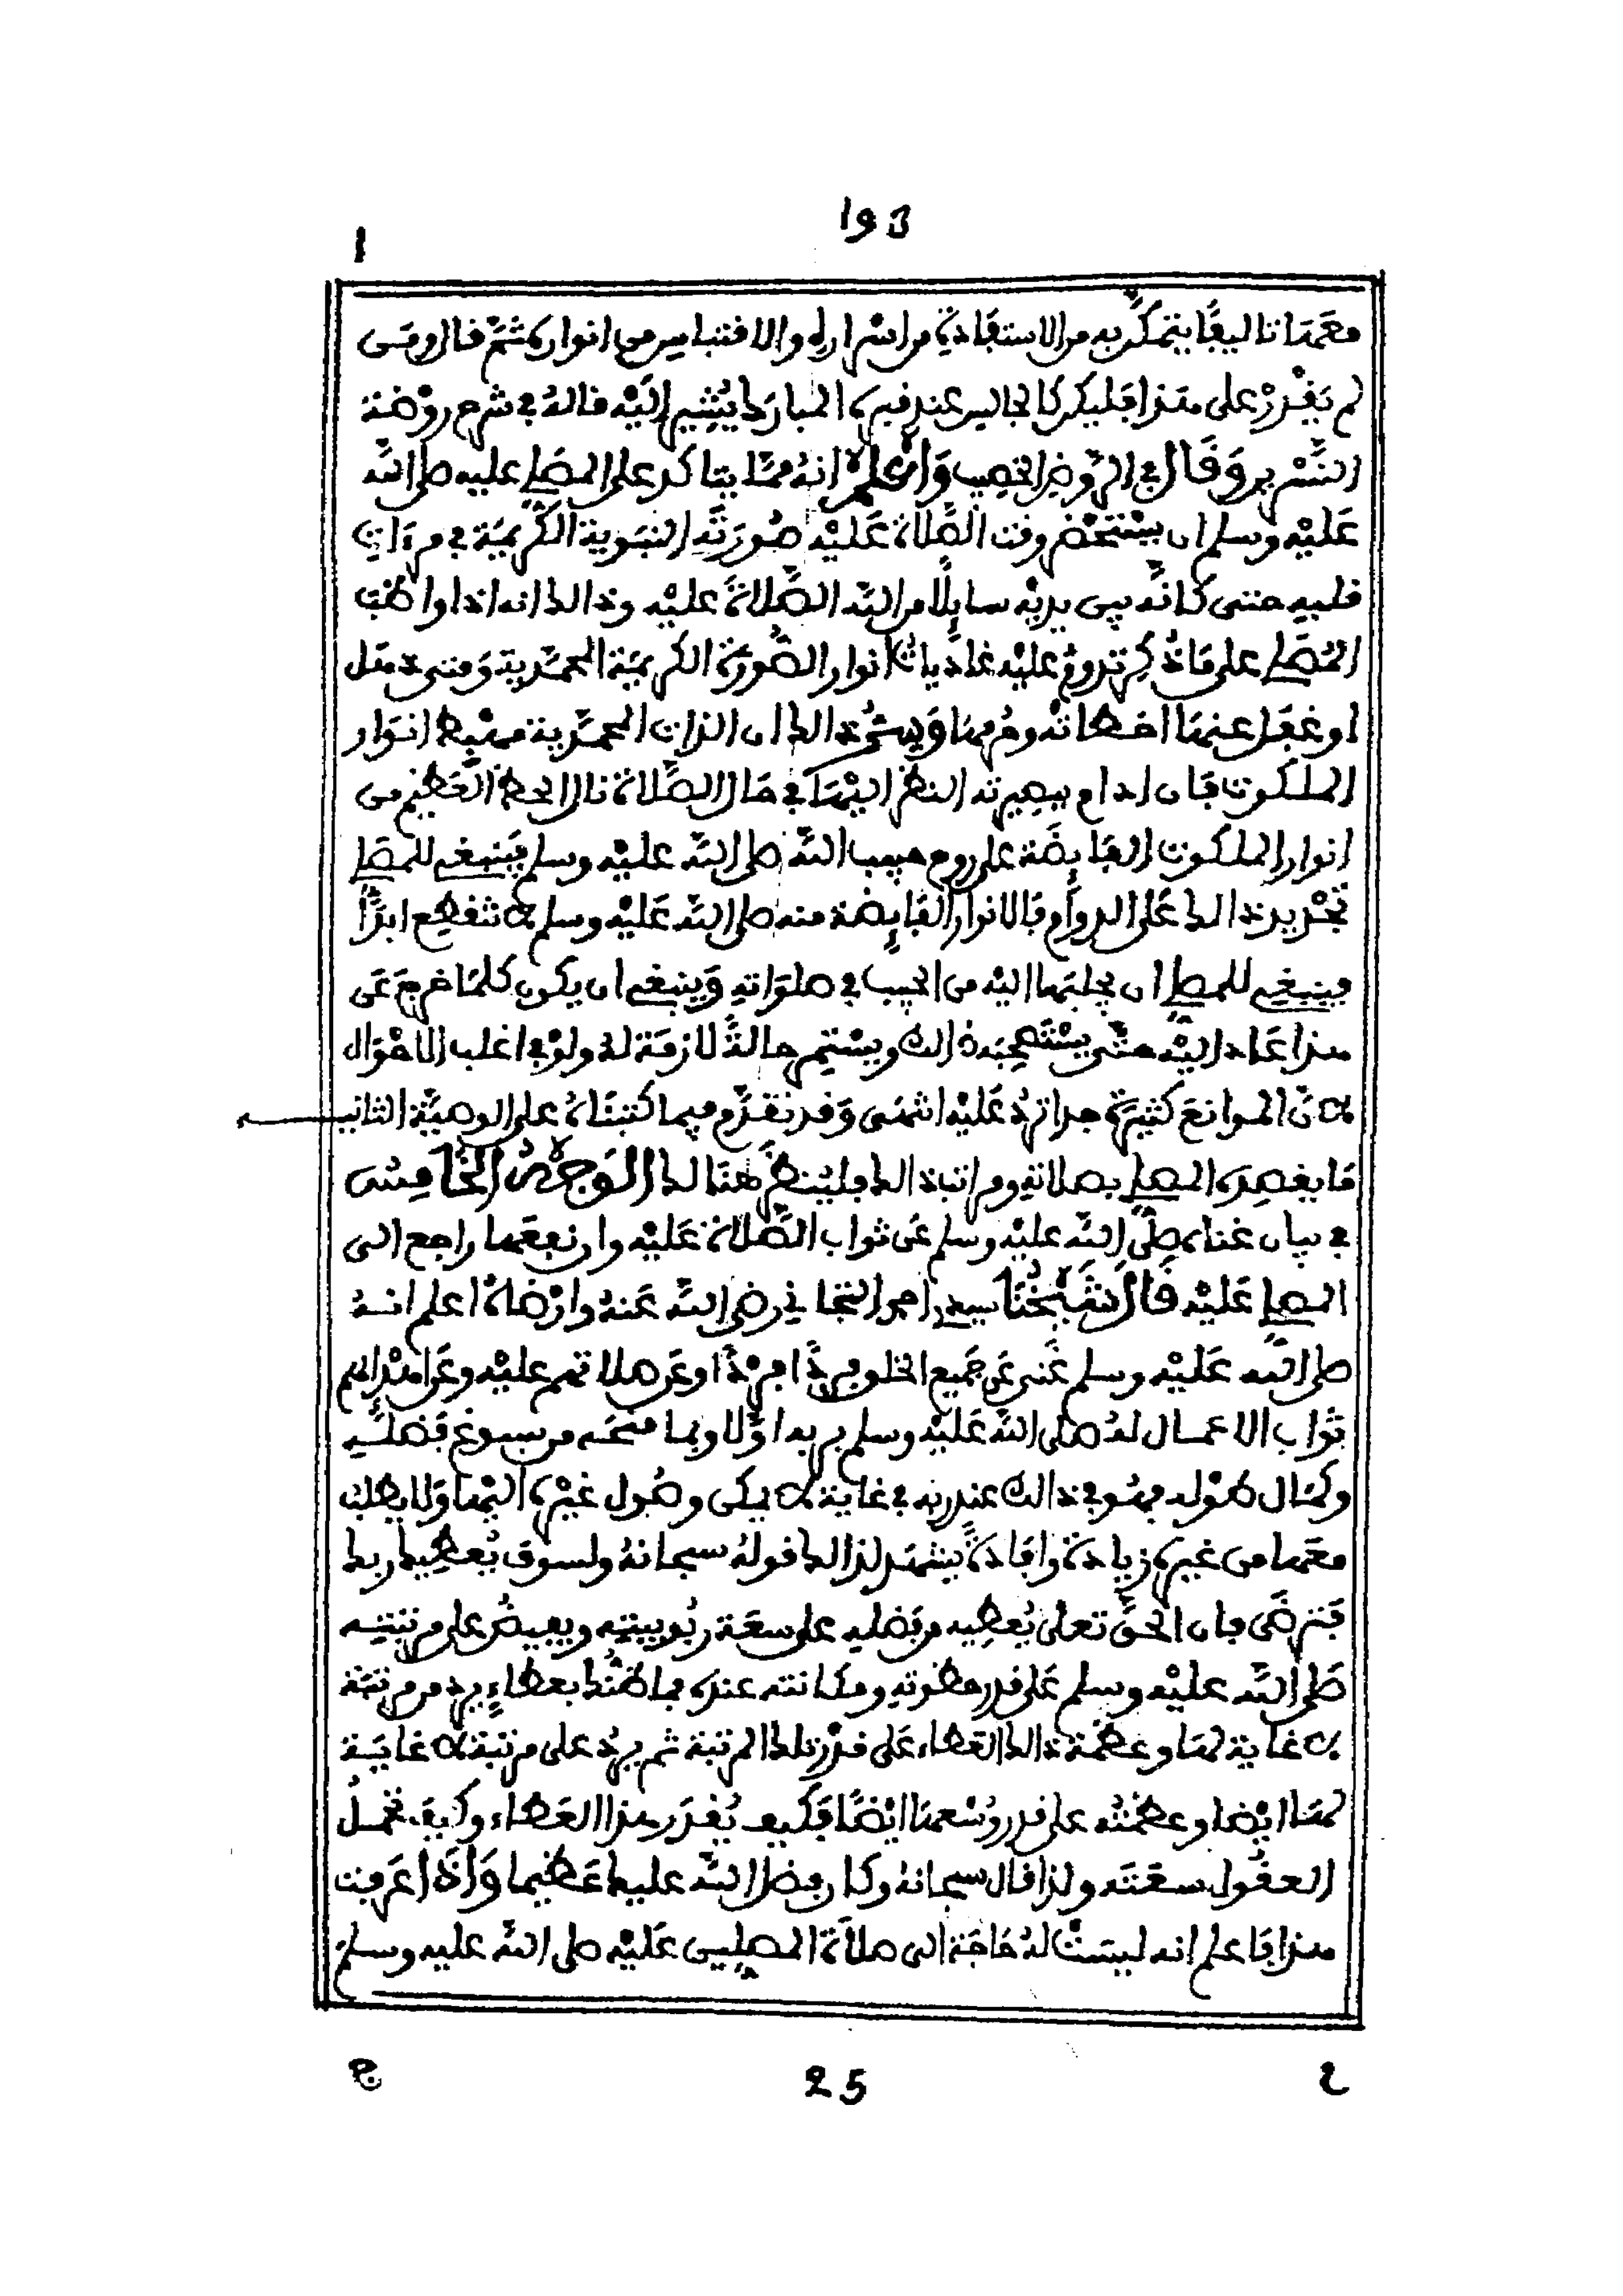 193
1
معهما تاليفا يتمكن به من الاستفادة من اسراره والاقتباس من انواره ثم قال ومن
لم يقدر على هذا فليكن كالجالس عند قبره المبارك يشير اليه قاله في شرح روضة
النسرين وقال في الروض الخصيب واعلم انه مما يتاكد على المصلي عليه صلى الله
عليه وسلم ان يستحضر وقت الصلاة عليه صورته النبوية الكريمة في مرءات
قلبه حتى كانه بين يديه سايلا من الله الصلاة عليه وذالك انه اذا واظب
المصلي على ما ذكر تروح عليه غاديات انوار الصورة الكريمة المحمدية ومتى
او غفل عنها اخطاته وحرمها وسر ذالك ان الذات المحمدية مهبط انوار
الملكوت فان ادام ببصيرته النظر اليها في حال الصلاة نال الحظ العظيم من
انوار الملكوت الفايضة على روح حبيب الله صلى الله عليه وسلم فينبغي للمصلي
ذالك على الدوام فالانوار الفايضة منه صلى الله عليه وسلم لا تنقطع ابدا
فينبغي للمصلي ان يجلبها اليه من الحبيب في صلواته وينبغي ان يكون كلما خرج عن
هذا عاد اليه حتى يستصحبه ذالك ويستمر حالة لازمة له ولو في اغلب الاحوال
لان الموانع كثيرة جدا ترد عليه انتهى وقد تقدم فيما كتبناه على الوصية الثانية
ما يقصده المصلي بصلاته ومراتب ذالك فلينظر هنالك الوجه الخامس
في بيان غناه صلى الله عليه وسلم عن ثواب الصلاة عليه وان نفعها راجع الى
المصلي عليه قال شيخنا سيدي احمد التجاني رضي الله عنه وارضاه اعلم انه
صلى الله عليه وسلم غني عن جميع الخلق فردا فردا وعن صلاتهم عليه وعن اهدائهم
ثواب الاعمال له صلى الله عليه وسلم بربه اولا وبما منحه من سبوغ فضله
وكمال طوله فهو في ذالك عند ربه في غاية لا يمكن وصول غيره اليها ولا يطلب
معها من غيره زيادة وافادة يشهد لذالك قوله سبحانه ولسوف يعطيك ربك
فترضى فان الحق تعلى يعطيه من فضله على سعة ربوبيته ويفيض على مرتبته
صلى الله عليه وسلم على قدر حظوته ومكانته عنده فما ظنك بعطاء يرد من مرتبة
لا غاية لها وعظمة ذالك العطاء على قدر تلك المرتبة ثم يرد على مرتبة لا غاية
لها ايضا وعظمته على قدر وسعها ايضا فكيف يقدر هذا العطاء وكيف تحمل
العقول سعته ولذا قال سبحانه وكان فضل الله عليك عظيما واذا عرفت
هذا فاعلم انه ليست له حاجة الى صلاة المصلين عليه صلى الله عليه وسلم
25